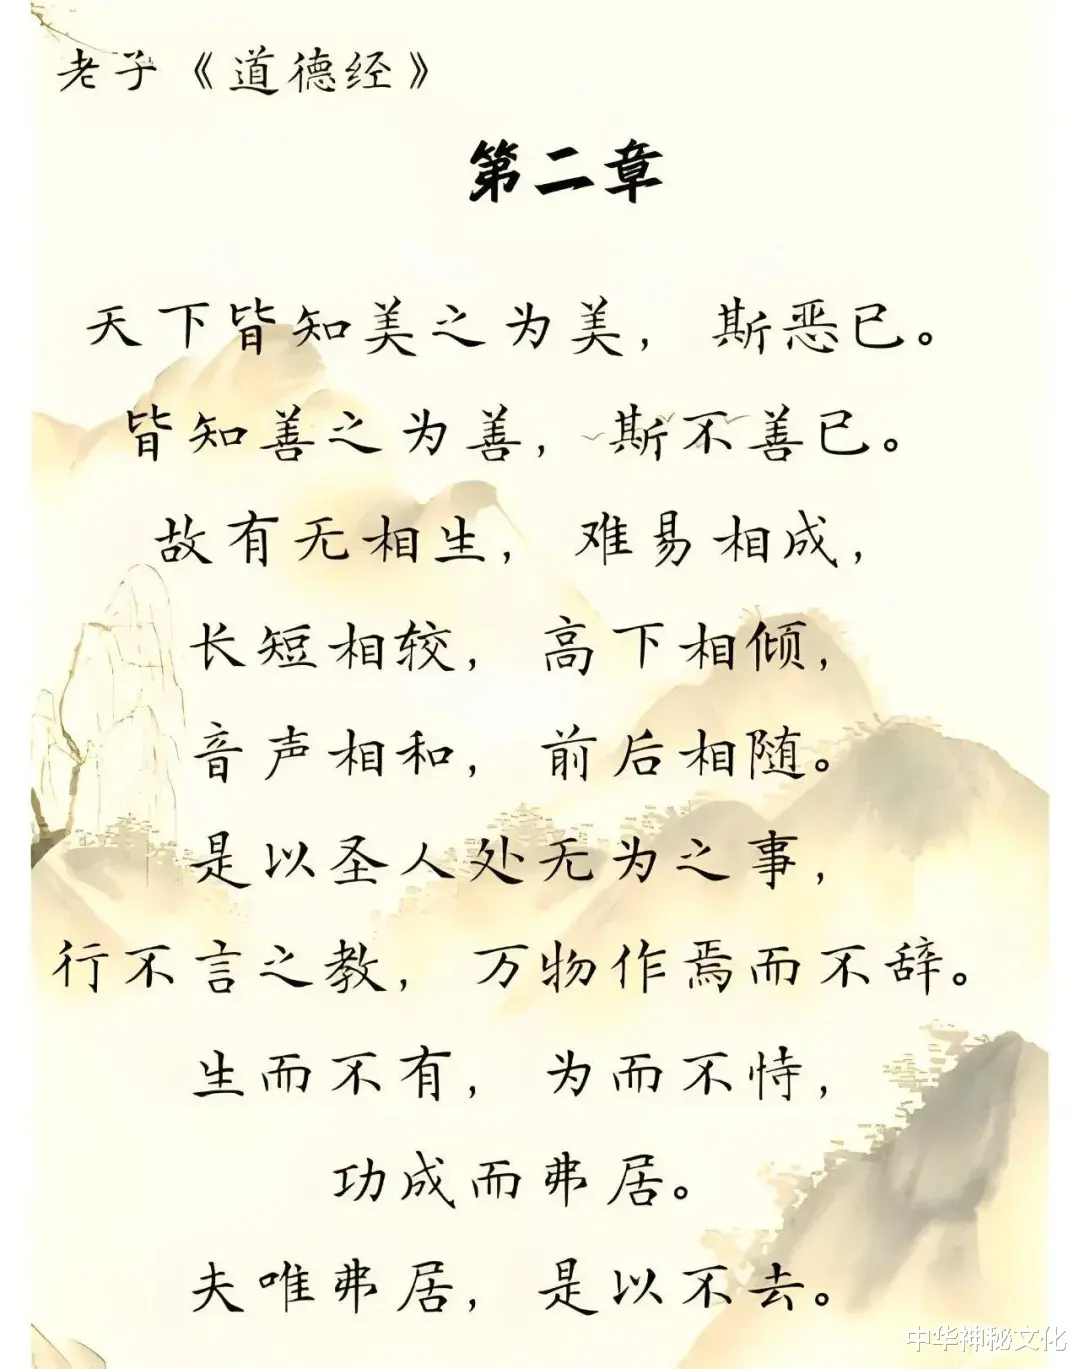 老子《道德经》
第二章
天下皆知美之为美，斯恶已。
皆知善之为善，斯不善已。
故有无相生，难易相成，
长短相较，高下相倾，
音声相和，前后相随。
是以圣人处无为之事，
行不言之教，万物作焉而不辞。
生而不有，为而不恃，
功成而弗居。
夫唯弗居，是以不去。
中华神秘文化